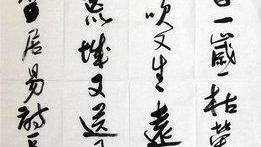 一歲一枯榮
吹又生遠
荒城又送
居易詩